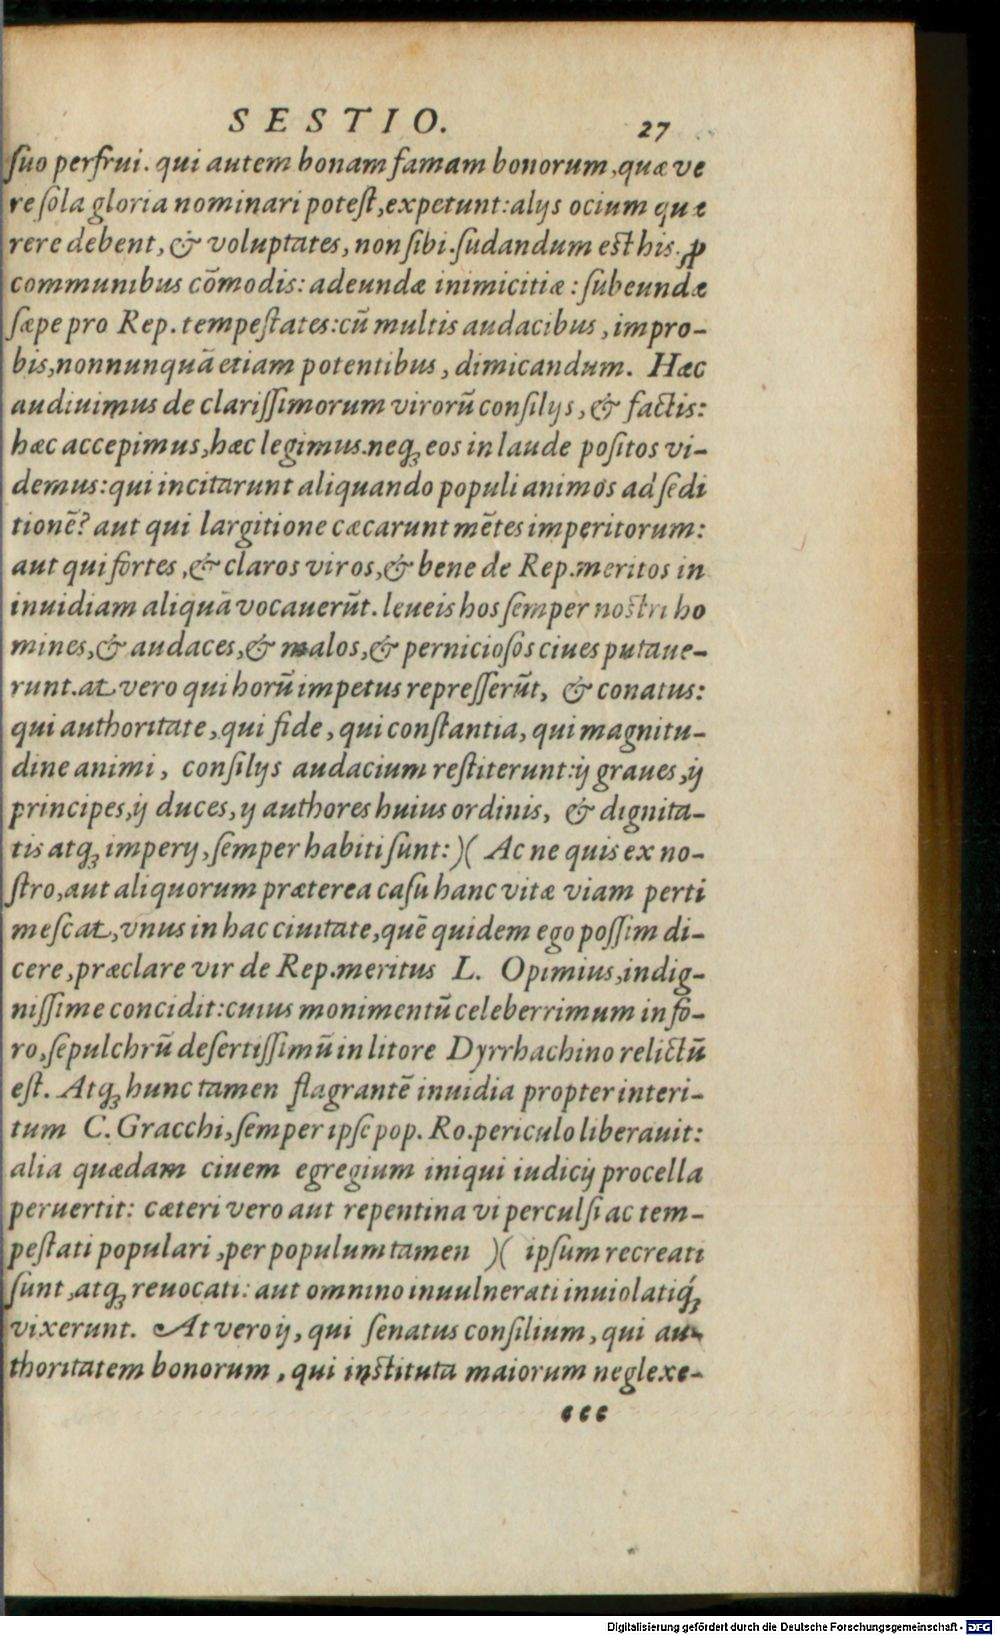 SESTIO. 27
ſuo perfrui. qui autem bonam famam bonorum, quæ ve
re ſola gloria nominari poteſt, expetunt: alijs ocium quæ
rere debent, & voluptates, non ſibi. ſudandum eſt his ꝓ
communibus cōmodis: adeundæ inimicitiæ: ſubeundæ
ſæpe pro Rep. tempeſtates: cū multis audacibus, impro-
bis, nonnunquā etiam potentibus, dimicandum. Hæc
audiuimus de clariſſimorum virorū conſilijs, & factis:
hæc accepimus, hæc legimus. neq; eos in laude poſitos vi-
demus: qui incitarunt aliquando populi animos ad ſedi
tionē? aut qui largitione cæcarunt mētes imperitorum:
aut qui fortes, & claros viros, & bene de Rep. meritos in
inuidiam aliquā vocauerūt. leueis hos ſemper noſtri ho
mines, & audaces, & malos, & pernicioſos ciues putaue-
runt. at vero qui horū impetus repreſſerūt, & conatus:
qui authoritate, qui fide, qui conſtantia, qui magnitu-
dine animi, conſilijs audacium reſtiterunt: ij graues, ij
principes, ij duces, ij authores huius ordinis, & dignita-
tis atq; imperij, ſemper habiti ſunt: )( Ac ne quis ex no-
ſtro, aut aliquorum præterea caſu hanc vitæ viam perti
meſcat, vnus in hac ciuitate, quē quidem ego poſſim di-
cere, præclare vir de Rep. meritus L. Opimius, indig-
niſſime concidit: cuius monimentū celeberrimum in fo-
ro, ſepulchrū deſertiſſimū in litore Dyrrhachino relictū
eſt. Atq; hunc tamen flagrantē inuidia propter interi-
tum C. Gracchi, ſemper ipſe pop. Ro. periculo liberauit:
alia quædam ciuem egregium iniqui iudicij procella
peruertit: cæteri vero aut repentina vi perculſi ac tem-
peſtati populari, per populum tamen )( ipſum recreati
ſunt, atq; reuocati: aut omnino inuulnerati inuiolatiq́;
vixerunt. At vero ij, qui ſenatus conſilium, qui au-
thoritatem bonorum, qui inſtituta maiorum neglexe-
eee
Digitalisierung gefördert durch die Deutsche Forschungsgemeinschaft - DFG